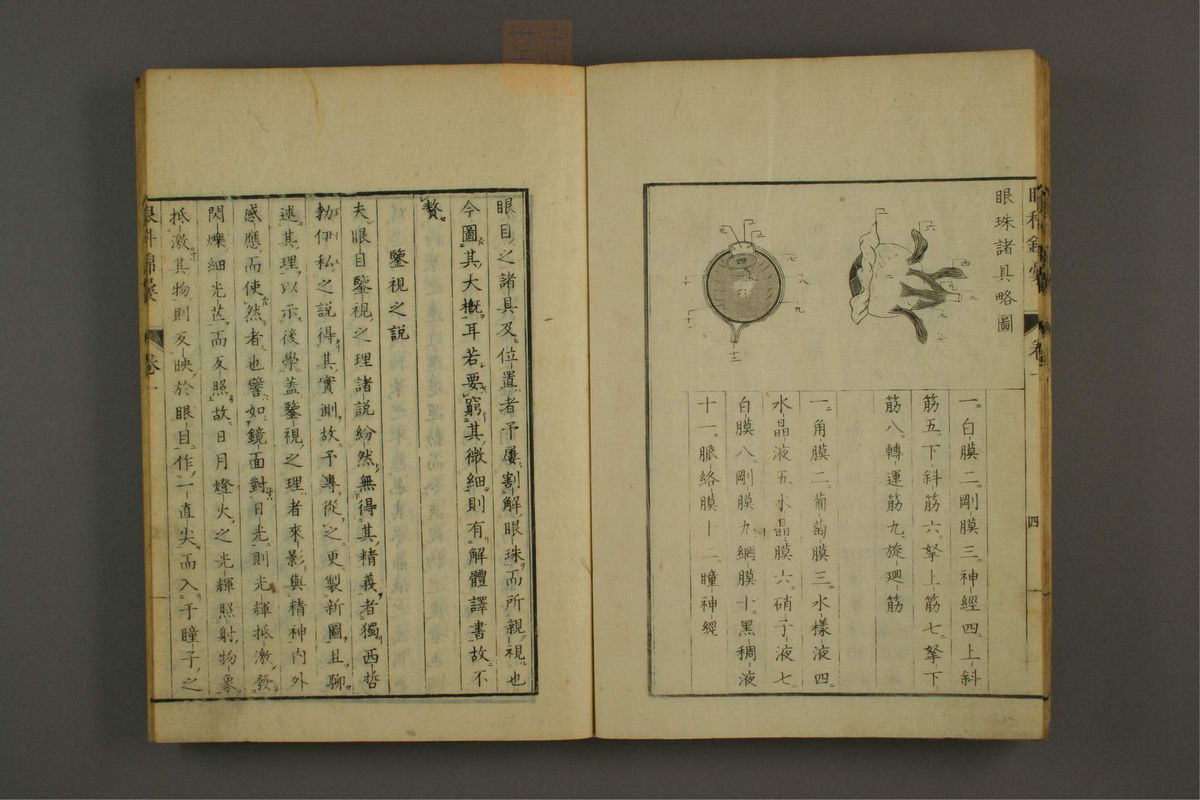 眼科錦囊 卷一 四
眼珠諸具略圖
一白膜二剛膜三神經四上斜
筋五下斜筋六拏上筋七拏下
筋八轉運筋九旋廻筋
一角膜二葡萄膜三水樣液四
水晶液五水晶膜六硝子液七
白膜八剛膜九網膜十黑稠液
十一脈絡膜十二瞳神經
眼目之諸具及位置者予屢割解眼珠而所親視也
今圖其大槪耳若要窮其微細則有解體譯書故不
贅
鑒視之說
夫眼目鑒視之理諸說紛然無得其精義者獨西哲
勃伊私之說得其實測故予專從之更製新圖且聊
述其理以示後學蓋鑒視之理者來影與精神內外
感應而使然者也譬如鏡面對日光則光輝抵激發
閃爍細光芒而反照故日月燈火之光輝照射物象
抵激其物則反映於眼目作一直尖而入于瞳子之
眼科錦囊 卷一